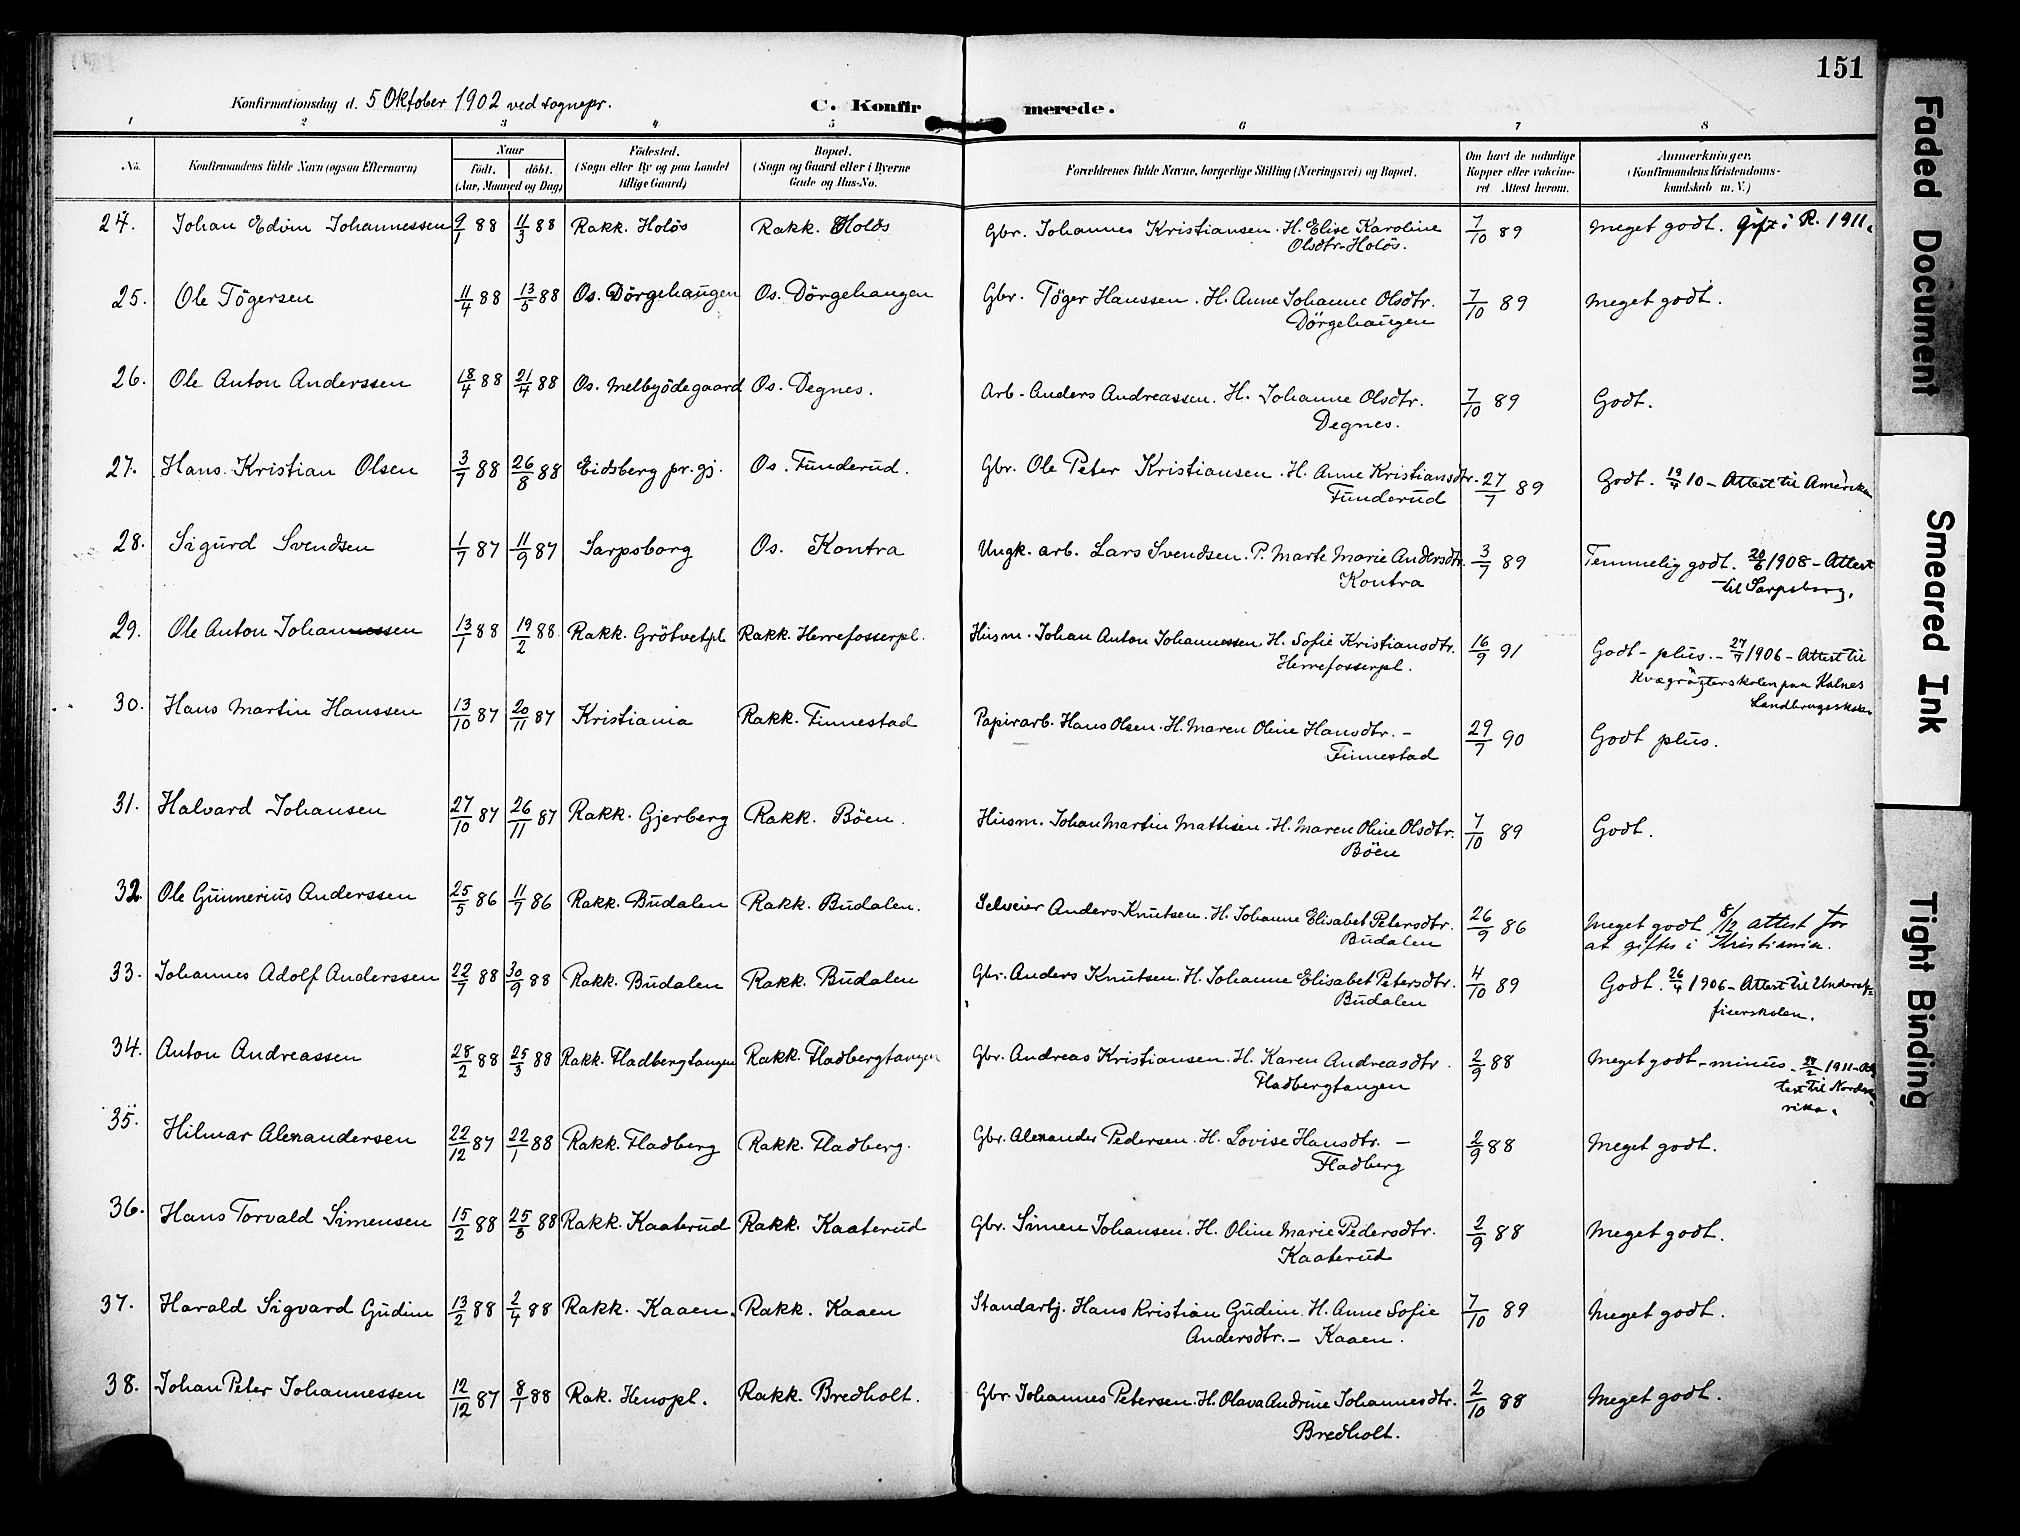 151
Konfirmationsdag d. 5 Oktober 1902 ved sognepr. C. Konfirmerede.
1 2 3 4 5 6 7 8
No. Konfirmandens fulde Navn (ogsaa Efternavn) Naar født. døbt. (Aar, Maaned og Dag) Fødested. (Sogn eller By og paa Landet tillige Gaard) Bopæl. (Sogn og Gaard eller i Byerne Gade og Hus-No. Forældrenes fulde Navne, borgerlige Stilling (Næringsvei) og Bopæl. Om havt de naturlige Kopper eller vakcineret Attest herom. Anmærkninger. (Konfirmandens Kristendomskundskab m. V.)
24. Johan Edvin Johannessen 9/1 88 11/3 88 Rakk. Holös Rakk. Holös Gbr. Johannes Kristiansen. H. Elise Karoline 7/10 89 Meget godt. Gift i R. 1911.
Olsdtr-Holös.
25. Ole Tögersen 11/4 88 13/5 88 Os. Dörgehaugen Os. Dörgehaugen Gbr. Töger Hanssen. H. Anne Johanne Olsdtr. 7/10 89 Meget godt.
Dörgehaugen
26. Ole Anton Anderssen 18/4 88 21/4 88 Os. Melbyödegaard Os. Degnes. Arb- Anders Andreassen. H. Johanne Olsdtr. 7/10 89 Godt.
Degnes.
27. Hans Kristian Olsen 3/7 88 26/8 88 Eidsberg pr.gj. Os. Funderud. Gbr. Ole Peter Kristiansen. H. Anne Kristiansdtr. 27/7 89 Godt. 19/4 10 - Attest til Amerika
Funderud
28. Sigurd Svendsen 1/7 87 11/9 87 Sarpsborg Os. Kontra Ungk. arb. Lars Svendsen. P. Marte Marie Andersdtr. 3/7 89 Temmelig godt. 20/6 1908 - Attest
Kontra til Sarpsborg.
29. Ole Anton Johannessen 13/1 88 19/2 88 Rakk. Grötvetpl Rakk. Herrefosserpl. Husm. Johan Anton Johannessen H. Sofie Kristiansdtr. 16/9 91 Godt - plus. - 27/9 1906 - Attest til
Herrefosserpl. Kvægrögterskolen paa Kalnes
Landbrugsskole
30. Hans Martin Hanssen 13/10 87 20/11 87 Kristiania Rakk. Finnestad Papirarb. Hans Olsen. H. Maren Oline Hansdtr. - 29/7 90 Godt plus.
Finnestad
31. Halvard Johansen 27/10 87 26/11 87 Rakk. Gjerberg Rakk. Böen. Husm. Johan Martin Mattisen. H. Maren Oline Olsdtr. 7/10 89 Godt.
Böen
32. Ole Gunnerius Anderssen 25/5 86 11/7 86 Rakk. Budalen Rakk. Budalen. Selveier Anders Knutsen. H. Johanne Elisabet Petersdtr. 26/9 86 Meget godt 8/12 attest for
Budalen at giftes i Kristiania.
33. Johannes Adolf Anderssen 22/7 88 30/9 88 Rakk. Budalen Rakk. Budalen Gbr. Anders Knutsen. H. Johanne Elisabet Petersdtr. 4/10 89 Godt. 26/4 1906 - Attest til Underof-
Budalen ficierskolen.
34. Anton Andreassen 28/2 88 25/3 88 Rakk. Fladbergtangen Rakk. Fladbergtangen Gbr. Andreas Kristiansen. H. Karen Andreasdtr. 2/9 88 Meget godt - minus - 1911 - At-
Fladbergtangen test til Nordame-
rika.
35. Hilmar Alexandersen 22/12 87 22/1 88 Rakk. Fladberg Rakk. Fladberg. Gbr. Alexander Pedersen. H. Lovise Hansdtr. - 2/9 88 Meget godt.
Fladberg
36. Hans Torvald Simensen 15/2 88 25/3 88 Rakk. Kaaterud Rakk. Kaaterud Gbr. Simen Johansen. H. Oline Marie Pedersdtr. 2/9 88 Meget godt.
Kaaterud
37. Harald Sigvard Gudim 13/2 88 2/4 88 Rakk. Kaaen. Rakk. Kaaen Standarbj. Hans Kristian Gudim. H. Anne Sofie 7/10 89 Meget godt.
Andersdtr. - Kaaen.
38. Johan Peter Johannessen 12/12 87 8/1 88 Rak. Henopl. Rakk. Bredholt. Gbr Johannes Petersen. H. Olava Andrine Johannesdtr. 2/10 88 Meget godt.
Bredholt.
Faded Document
Smeared Ink
Tight Binding